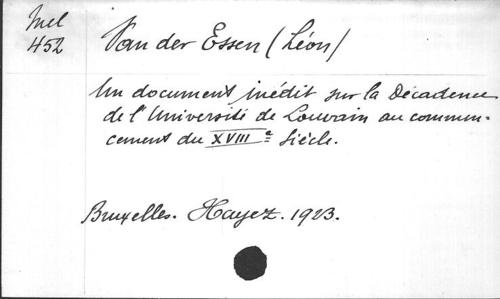 Mel
452
Van der Essen (Léon)
Un document inédit sur la Décadence
de l'Université de Louvain au commen-
cement du XVIIIe Siècle.
Bruxelles. Hayez. 1923.